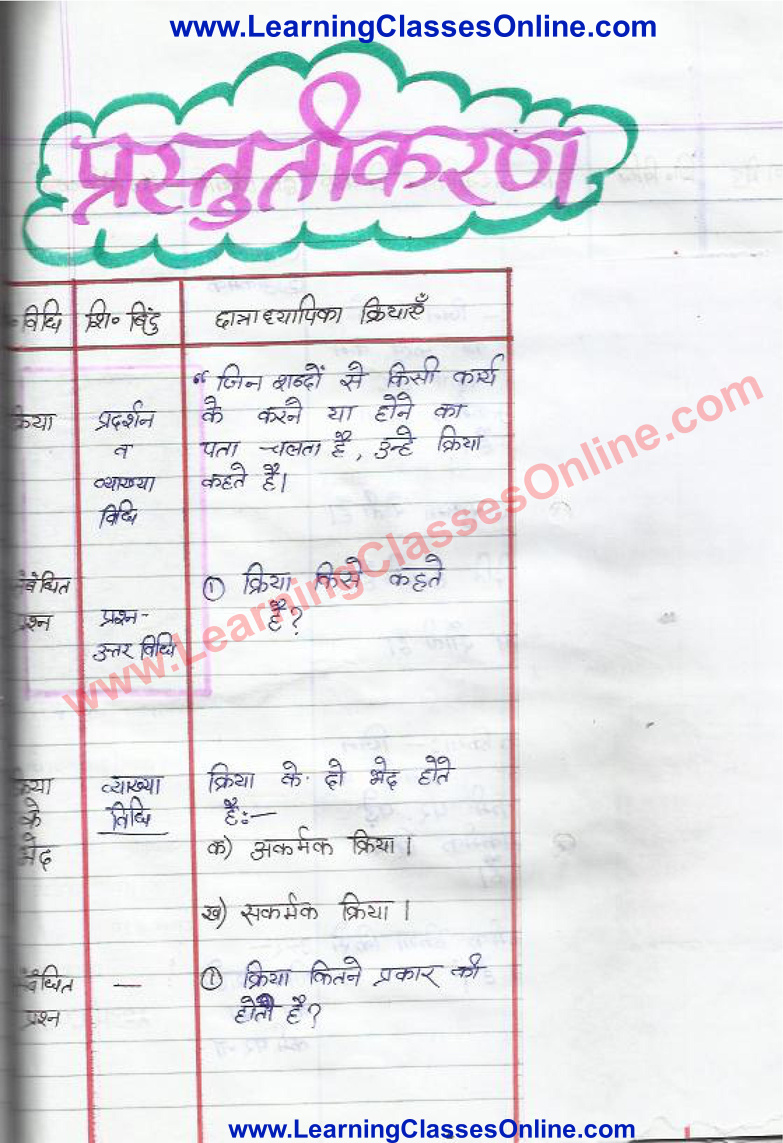 www.LearningClassesOnline.com
प्रस्तुतीकरण
विधि शि॰ बिंदु छात्राध्यापिका क्रियाएँ
“ जिन शब्दों से किसी कार्य
क्रिया प्रदर्शन के करने या होने का
व पता चलता है , उन्हे क्रिया
व्याख्या कहते है।
विधि
संबंधित ① क्रिया किसे कहते
प्रश्न प्रश्न- है?
उत्तर विधि
www.LearningClassesOnline.com
क्रिया व्याख्या क्रिया के दो भेद होते
के विधि है:—
भेद क) अकर्मक क्रिया।
ख) सकर्मक क्रिया।
संबंधित — ① क्रिया कितने प्रकार की
प्रश्न होती है?
www.LearningClassesOnline.com